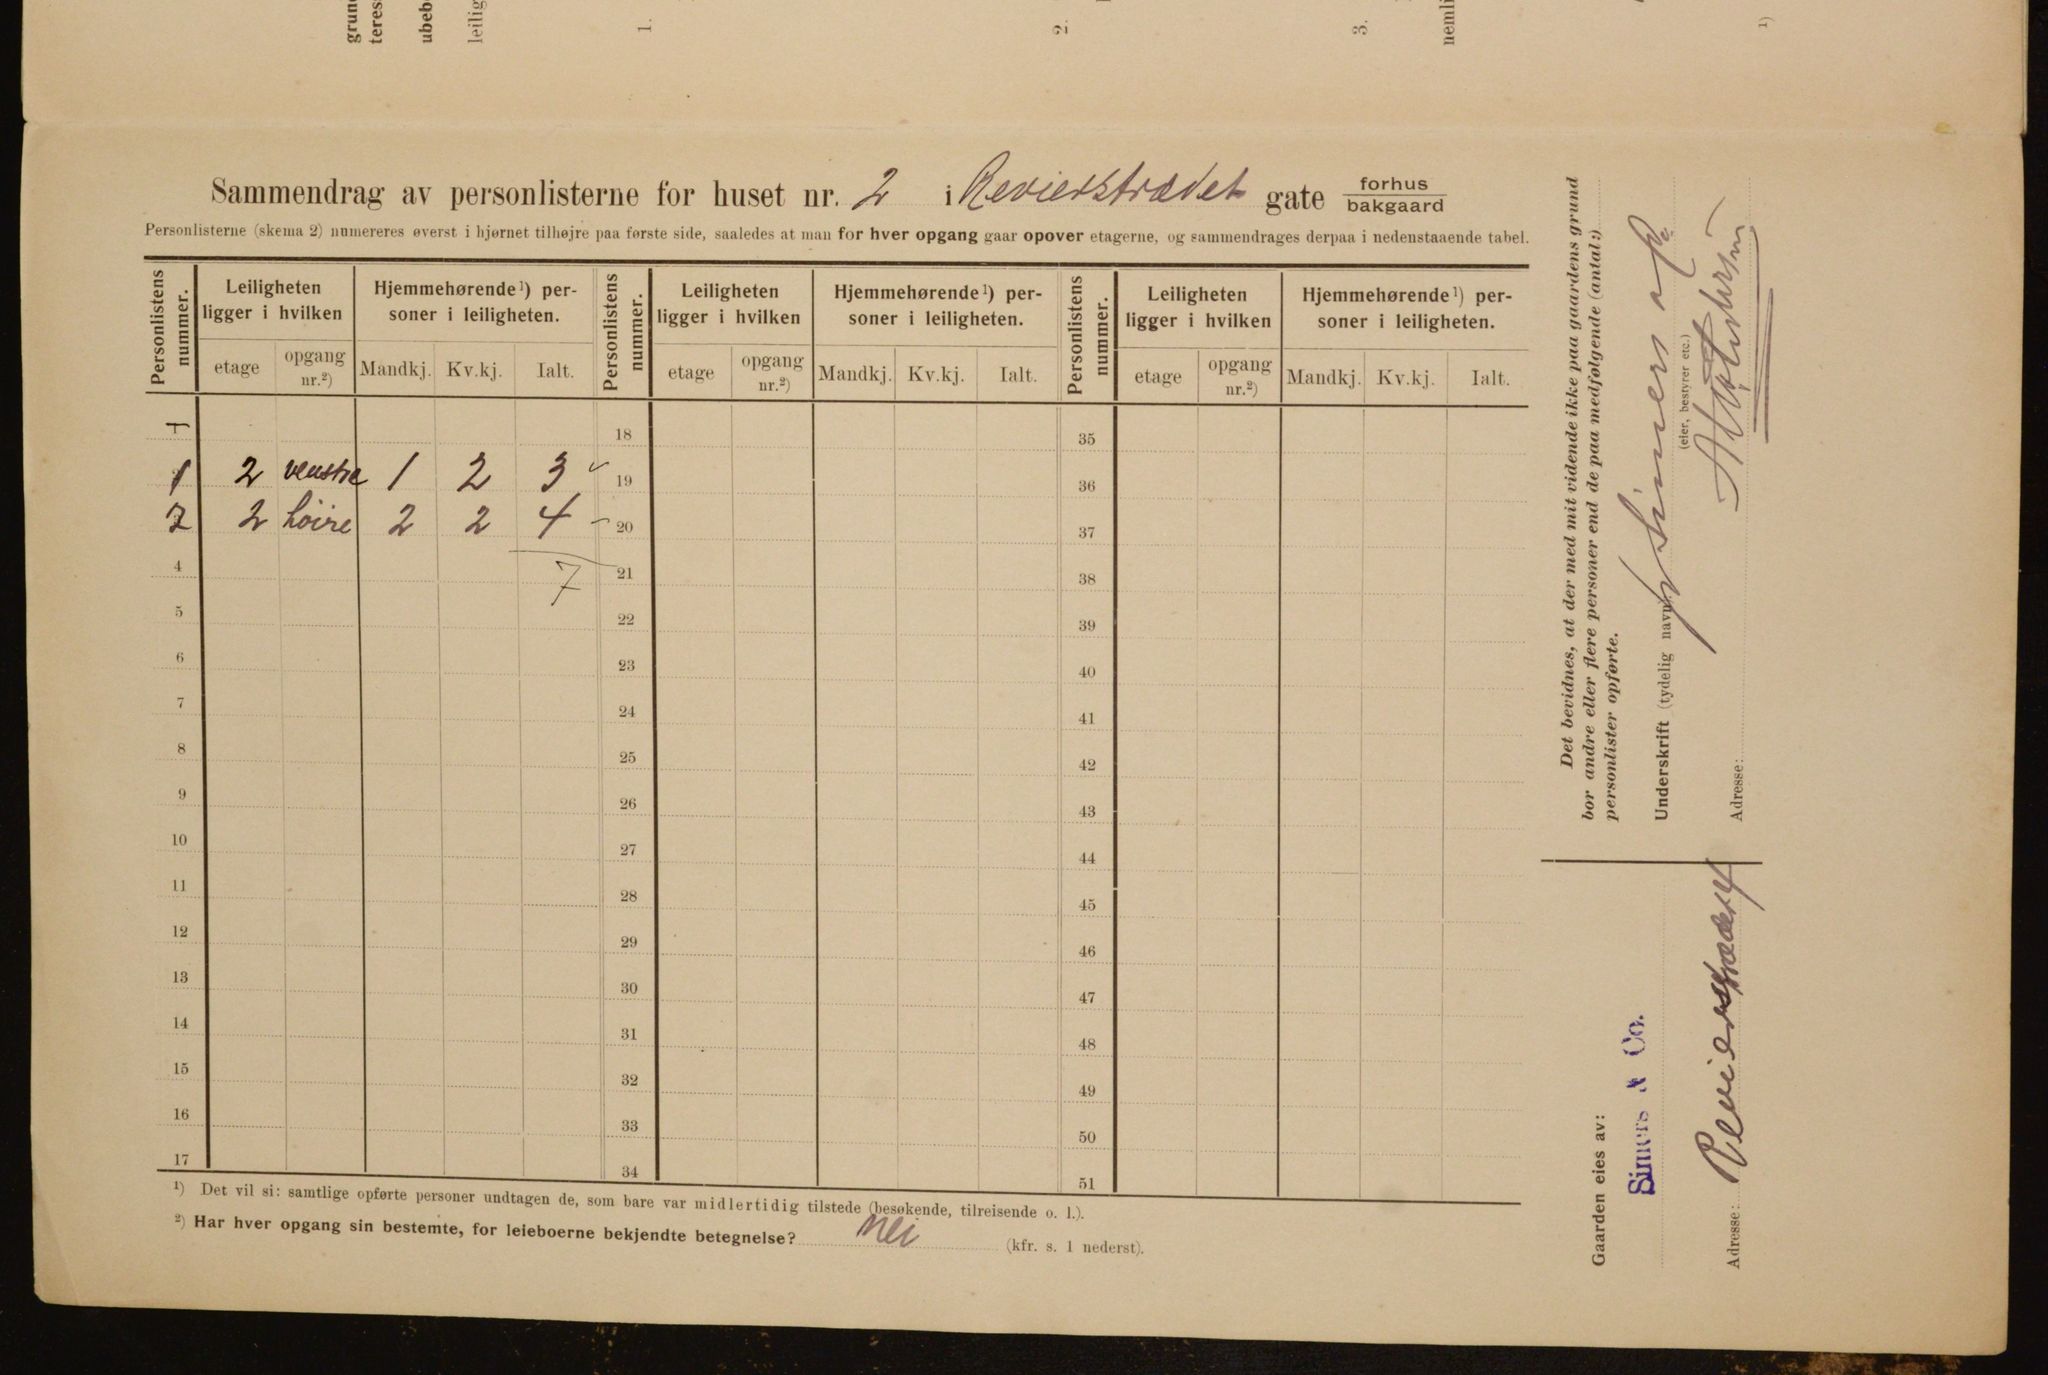 grund
teres
ubeb
leilig
1.
2.
3.
nemli
1)
Sammendrag av personlisterne for huset nr. 2 i Revierstrædet gate forhus
bakgaard
Personlisterne (skema 2) numereres øverst i hjørnet tilhøjre paa første side, saaledes at man for hver opgang gaar opover etagerne, og sammendrages derpaa i nedenstaaende tabel.
Personlistens nummer. Leiligheten ligger i hvilken Hjemmehørende 1) personer i leiligheten. Personlistens nummer. Leiligheten ligger i hvilken Hjemmehørende 1) personer i leiligheten. Personlistens nummer. Leiligheten ligger i hvilken Hjemmehørende 1) personer i leiligheten.
etage opgang nr.2) Mandkj. Kv.kj. Ialt. etage opgang nr.2) Mandkj. Kv.kj. Ialt. etage opgang nr.2) Mandkj. Kv.kj. Ialt.
18 35
1 2 venstre 1 2 3 19 36
2 2 høire 2 2 4 20 37
4 7 21 38
5 22 39
6 23 40
7 24 41
8 25 42
9 26 43
10 27 44
11 28 45
12 29 46
13 30 47
14 31 48
15 32 49
16 33 50
17 34 51
1) Det vil si: samtlige opførte personer undtagen de, som bare var midlertidig tilstede (besøkende, tilreisende o. l.).
2) Har hver opgang sin bestemte, for leieboerne bekjendte betegnelse? nei (kfr. s. 1 nederst).
Det bevidnes, at der med mit vidende ikke paa gaardens grund
bor andre eller flere personer end de paa medfølgende (antal:)
personlister opførte.
Underskrift (tydelig navn)
Simers & Co
(eier, bestyrer etc.)
Adresse:
Gaarden eies av:
Simers & Co.
Adresse: Revierstrædet 4